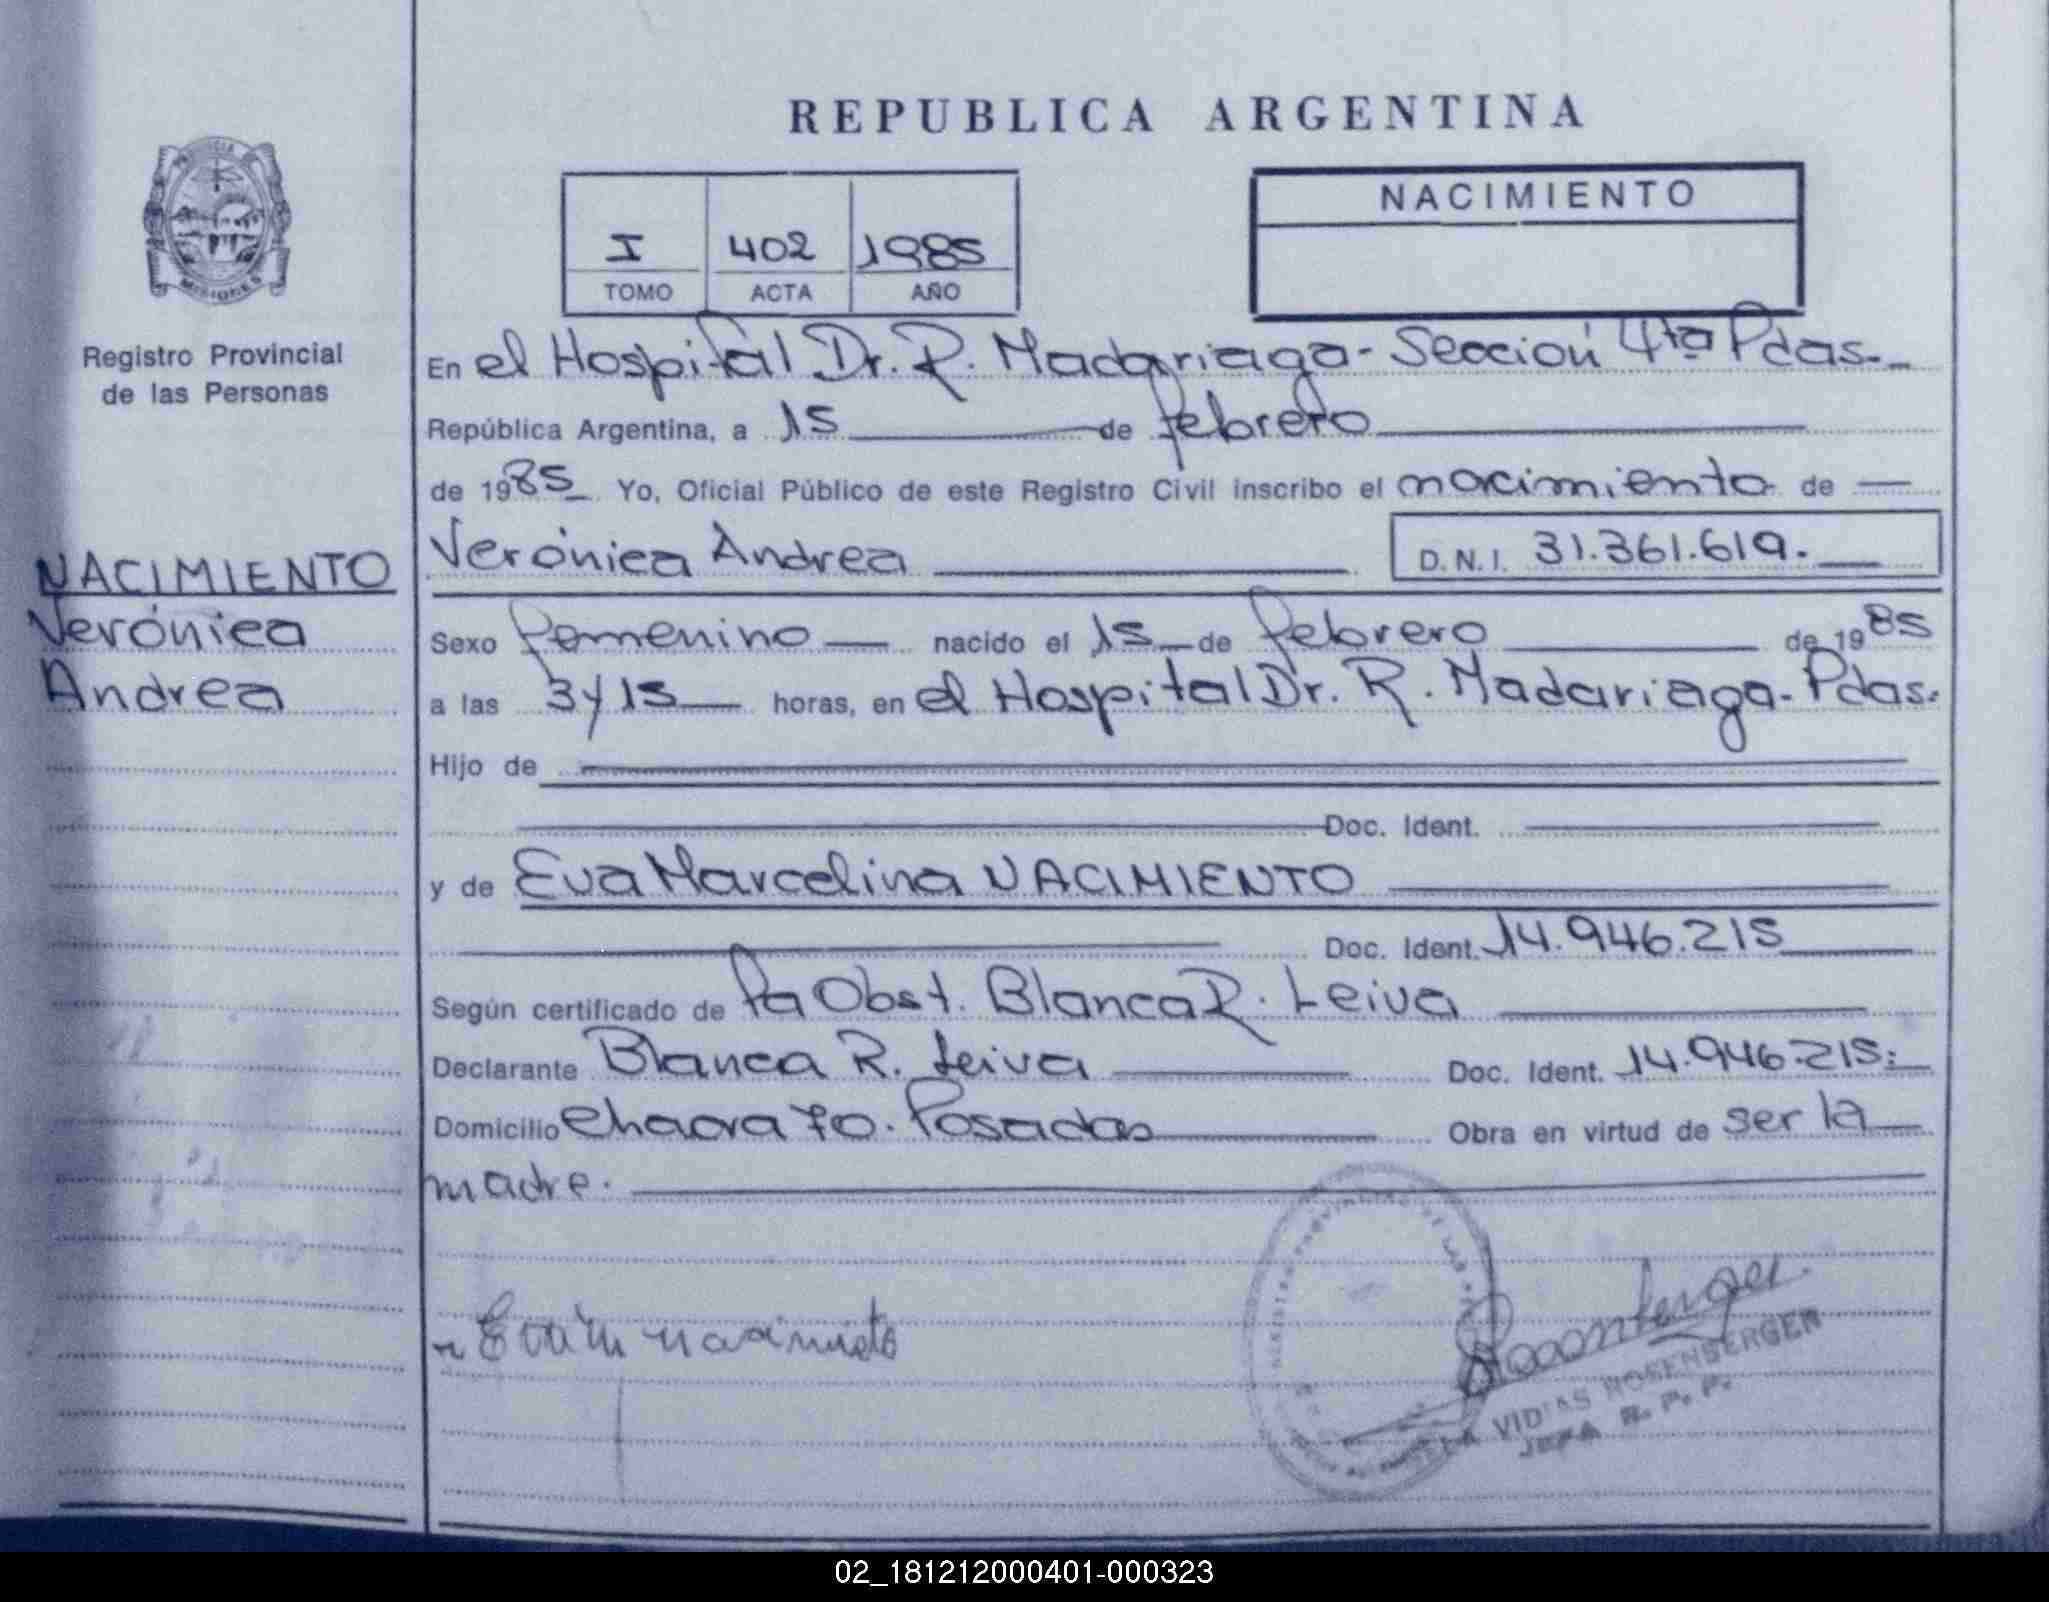 REPUBLICA ARGENTINA
PROVINCIA
MISIONES
Registro Provincial
de las Personas
I 402 1985
TOMO ACTA AÑO
NACIMIENTO
En el Hospital Dr. R. Madariaga - Sección 4ta Pdas.
República Argentina, a 15 de febrero
de 1985 Yo, Oficial Público de este Registro Civil inscribo el nacimiento de
NACIMIENTO
Verónica
Andrea
Verónica Andrea D.N.I. 31.361.619.
Sexo femenino nacido el 15 de febrero de 1985
a las 3 y 15 horas, en el Hospital Dr. R. Madariaga - Pdas.
Hijo de
Doc. Ident.
y de Eva Marcelina NACIMIENTO
Doc. Ident. 14.946.215
Según certificado de la Obst. Blanca R. Leiva
Declarante Blanca R. Leiva Doc. Ident. 14.946.215.
Domicilio Chacra 70. Posadas Obra en virtud de ser la
madre.
nacimiento
VIDAS ROSENBERGER
JEFA R. P. P.
02_181212000401-000323